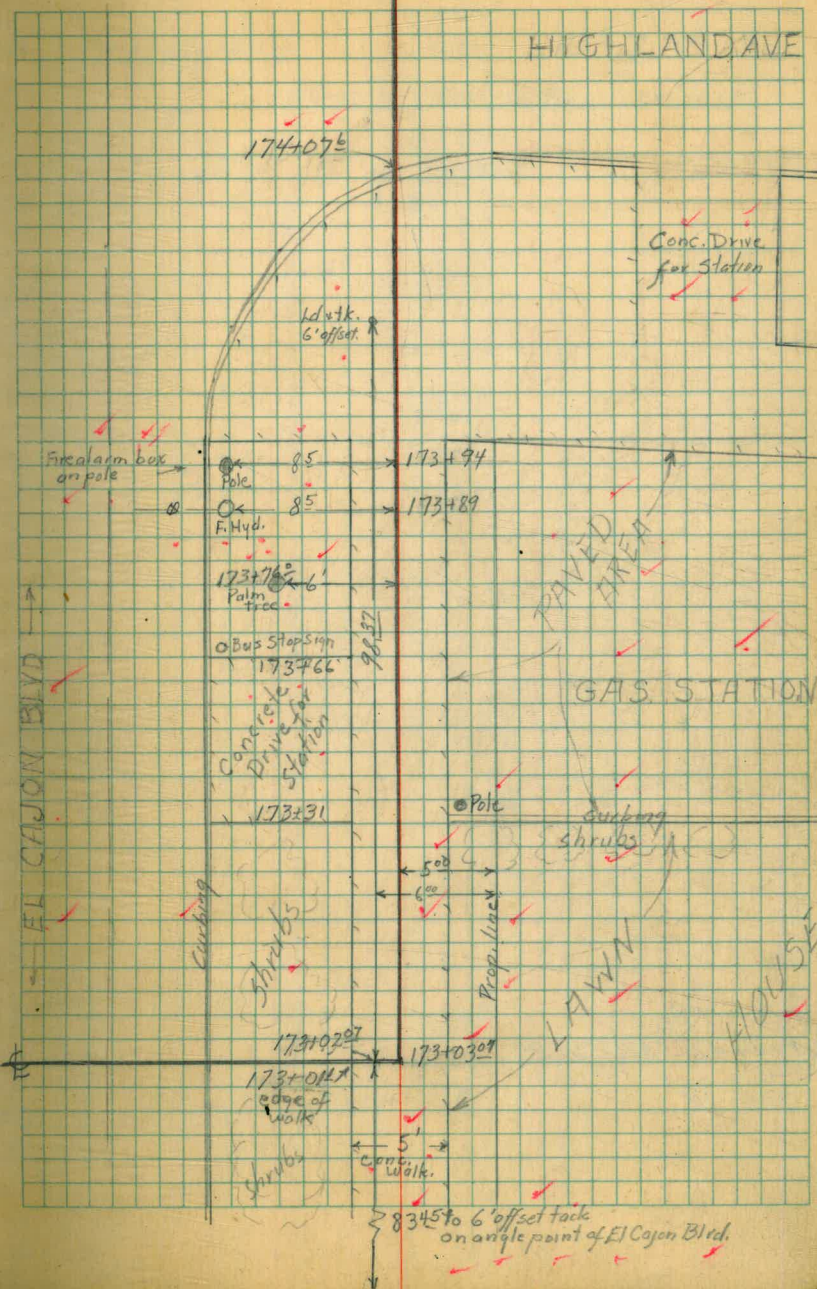 HIGHLAND AVE
174+07⁶
Conc. Drive
for Station
Ld & tk.
6' offset.
Firealarm box
on pole
8⁵
173+94
Pole
8⁵
173+89
F. Hyd.
173+76⁰
6'
Palm
tree
Bus Stop Sign
173+66
98.37
PAVED
AREA
EL CAJON BLVD
GAS STATION
Concrete
Drive for
Station
173+31
Pole
Curbing
shrubs
5⁰⁰
6⁰⁰
Curbing
Shrubs
Prop. line
LAWN
HOUSE
173+03⁰⁷
edge of
walk
5'
Conc.
walk.
Shrubs
834⁵ to 6' offset tack
on angle point of El Cajon Blvd.